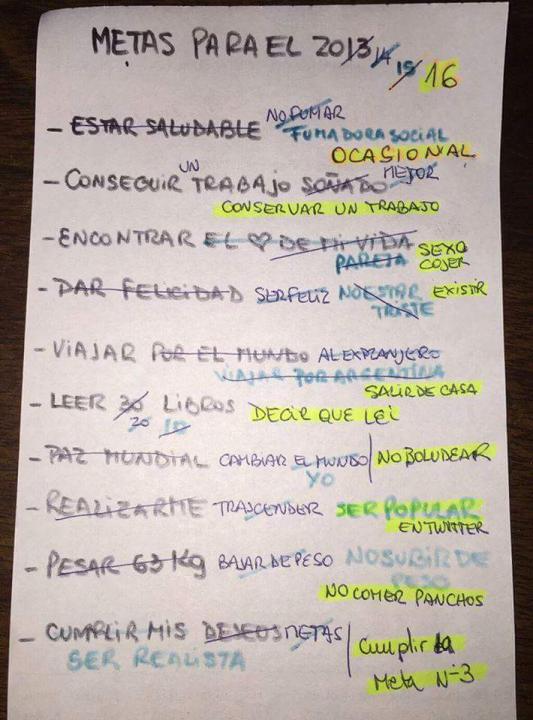 METAS PARA EL 2013 14 15 16
- ESTAR SALUDABLE NO FUMAR
FUMADORA SOCIAL
OCASIONAL
- CONSEGUIR UN TRABAJO SOÑADO MEJOR
CONSERVAR UN TRABAJO
- ENCONTRAR EL ♥ DE MI VIDA SEXO
PAREJA COJER
- DAR FELICIDAD SER FELIZ NO ESTAR EXISTIR
TRISTE
- VIAJAR POR EL MUNDO AL EXTRANJERO
VIAJAR POR ARGENTINA
SALIR DE CASA
- LEER 30 LIBROS DECIR QUE LEI
20 10
- PAZ MUNDIAL CAMBIAR EL MUNDO | NO BOLUDEAR
YO
- REALIZARME TRASCENDER SER POPULAR
EN TWITTER
- PESAR 63 Kg BAJAR DE PESO NO SUBIR DE
PESO
NO COMER PANCHOS
- CUMPLIR MIS DESEOS METAS | Cumplir la
SER REALISTA
Meta N-3